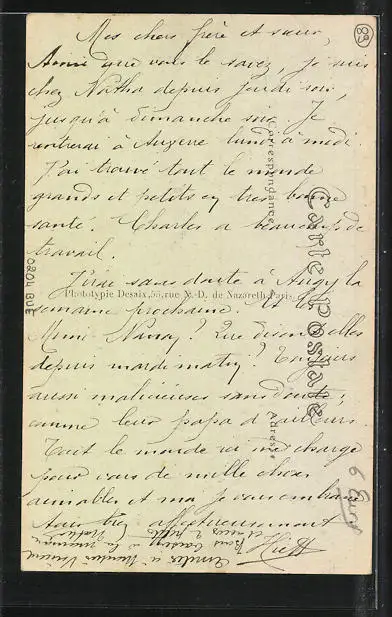 Mes chers frère et sœur,
Ainsi que vous le savez, je suis
chez Natha depuis jeudi soir,
jusqu'à dimanche soir. Je
rentrerai à Auxerre lundi à midi.
J'ai trouvé tout le monde
grands et petits en très bonne
santé. Charles a beaucoup de
travail.
J'irai sans doute à Augy la
semaine prochaine. Et
Mimi Nanay? Que disent elles
depuis mardi matin? Toujours
aussi malicieuses sans doute;
comme leur papa d'ailleurs.
Tout le monde ici me charge
pour vous de mille choses
aimables et moi je vous embrasse
tous très affectueusement
Carte Postale
Correspondance
Adresse
Phototypie Desaix, 55, rue N.-D. de Nazareth, Paris
0204 BUE
89
6 Euro